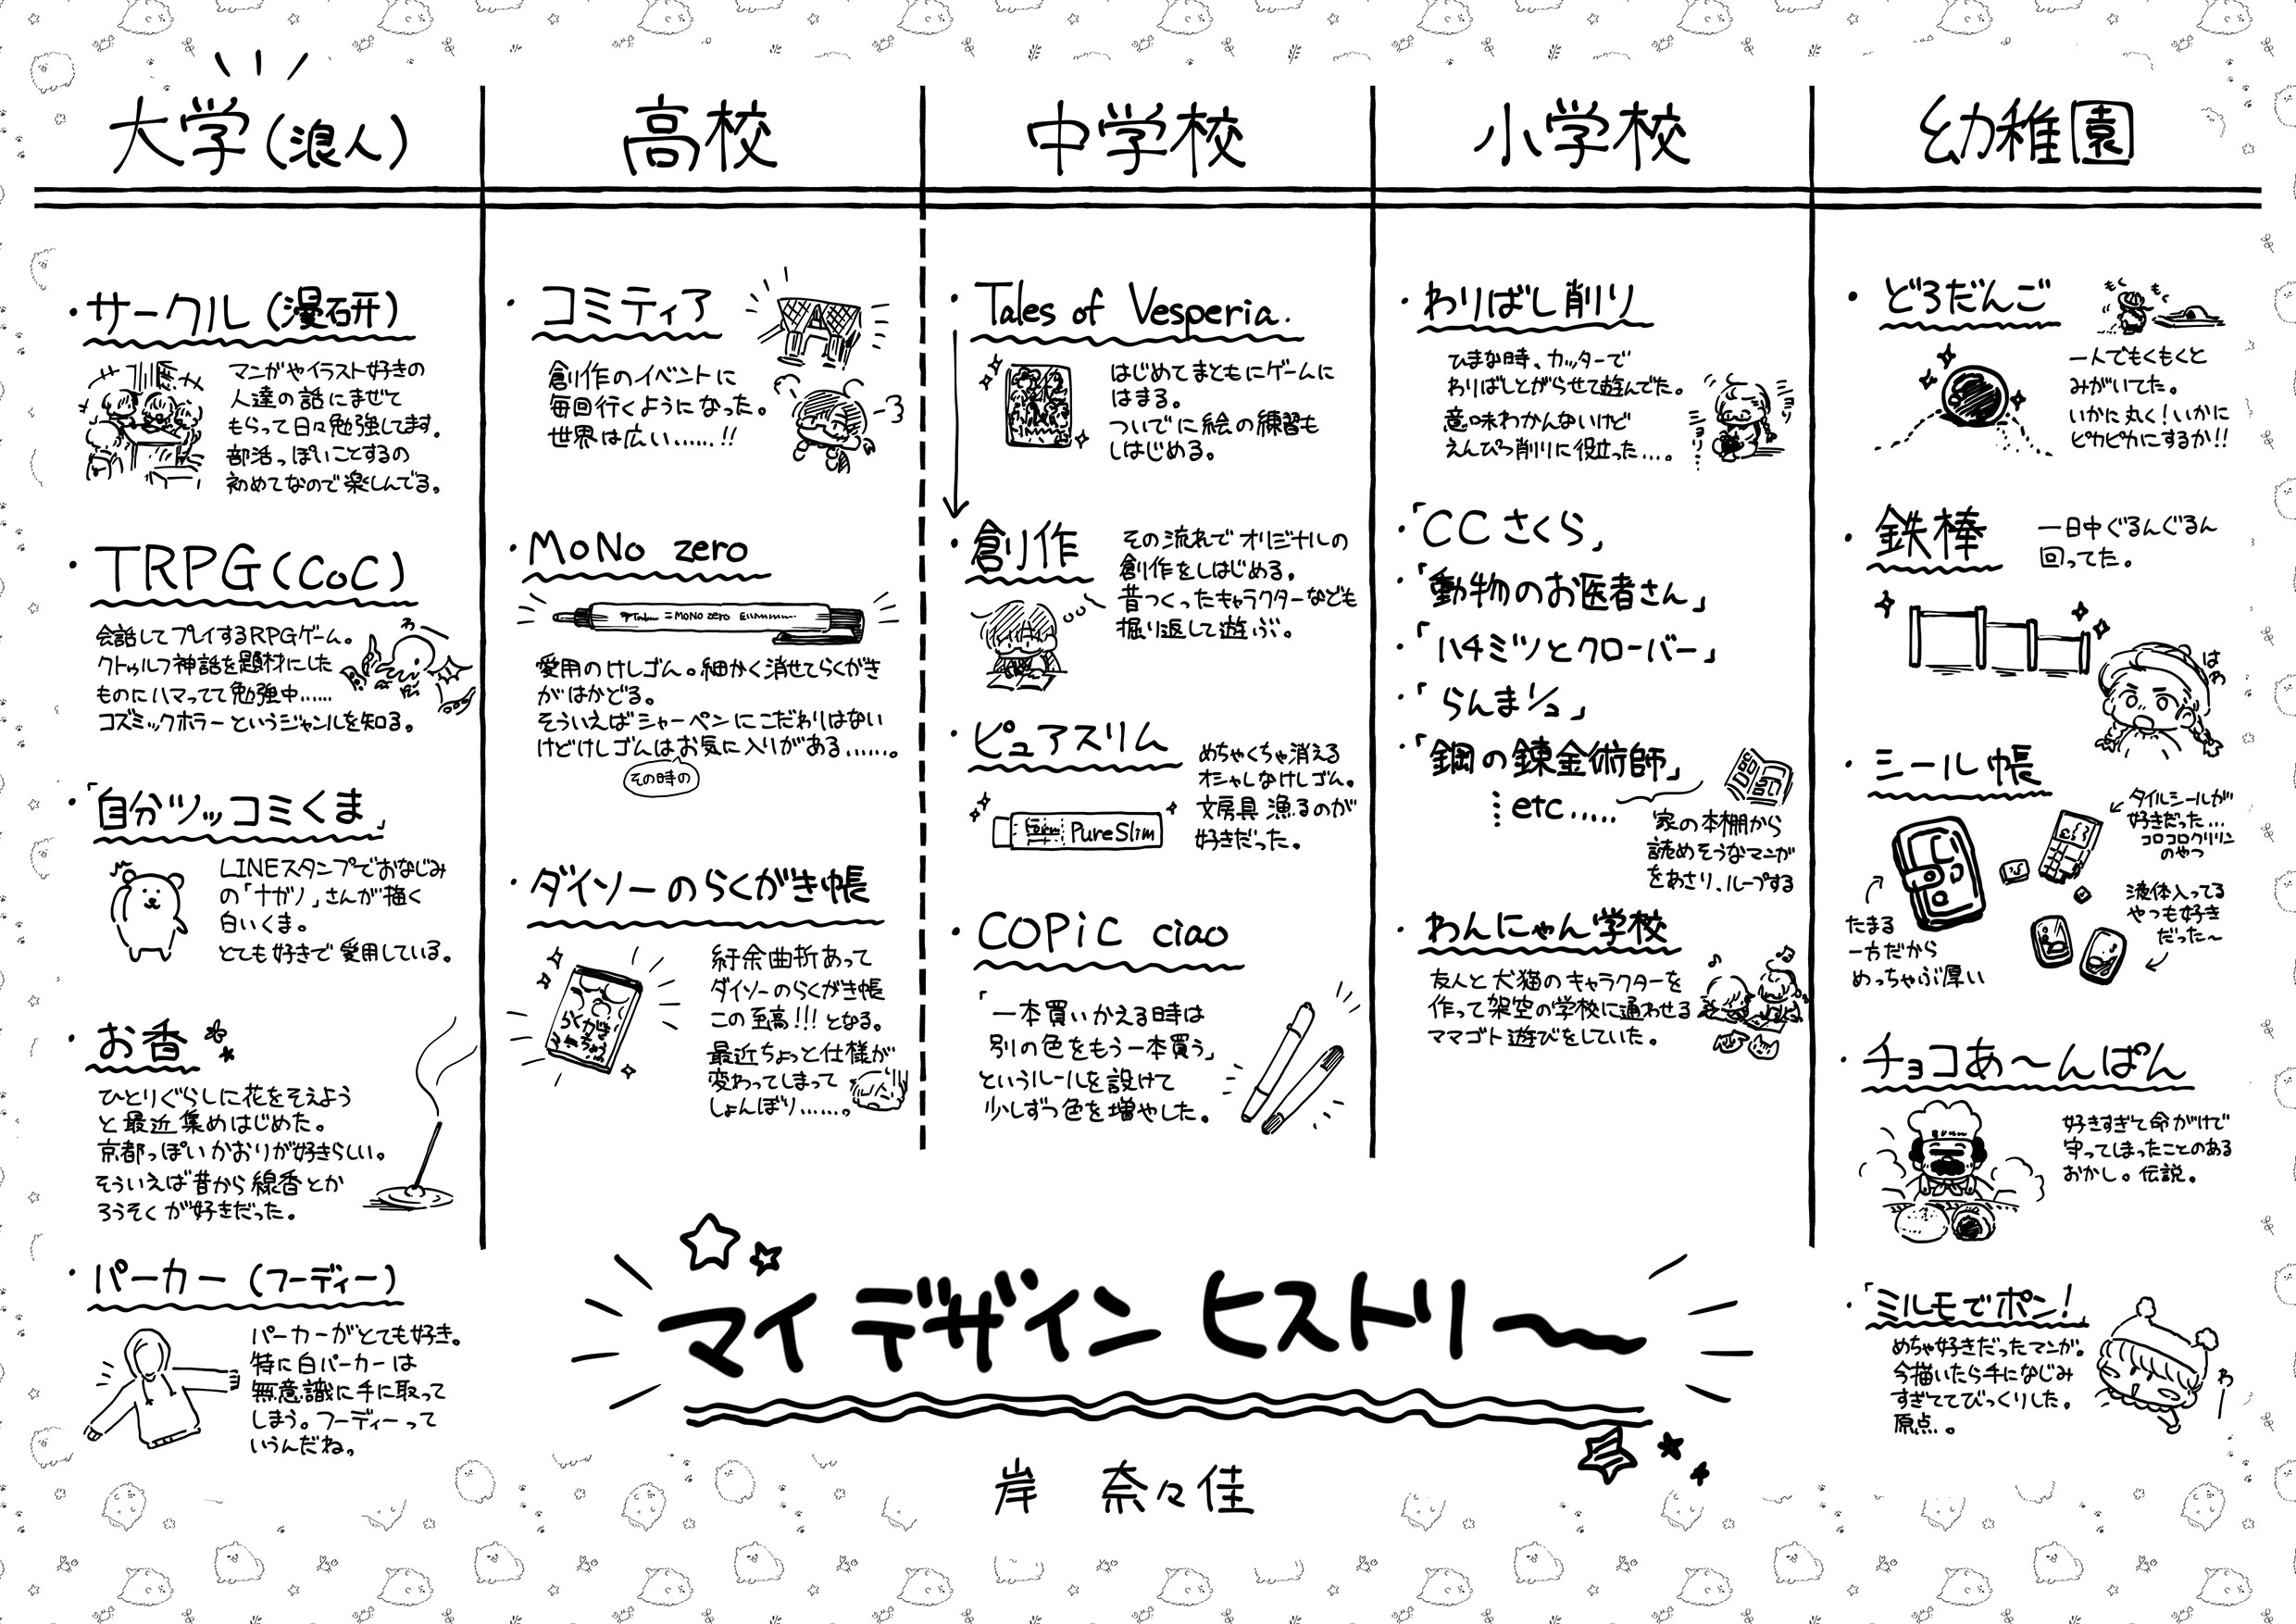 マイデザインヒストリー
岸 奈々佳
幼稚園
・どろだんご
もくもく
一人でもくもくと
みがいてた。
いかに丸く!いかに
ピカピカにするか!!
・鉄棒
一日中ぐるんぐるん
回ってた。
はわ
・シール帳
タイルシールが
好きだった…
コロコロクリリン
のやつ
液体入ってる
やつも好き
だった〜
たまる
一方だから
めっちゃぶ厚い
・チョコあ〜んぱん
好きすぎて命がけで
守ってしまったことのある
おかし。伝説。
・「ミルモでポン!」
めちゃ好きだったマンガ。
今描いたら手になじみ
すぎててびっくりした。
原点。
わー
小学校
・わりばし削り
ひまな時、カッターで
わりばしとがらせて遊んでた。
意味わかんないけど
えんぴつ削りに役立った…。
ショリ
ショリ…
・「CCさくら」
・「動物のお医者さん」
・「ハチミツとクローバー」
・「らんま1/2」
・「鋼の錬金術師」
…etc.....
家の本棚から
読めそうなマンガ
をあさり、ループする
・わんにゃん学校
友人と犬猫のキャラクターを
作って架空の学校に通わせる
ママゴト遊びをしていた。
中学校
・Tales of Vesperia.
はじめてまともにゲームに
はまる。
ついでに絵の練習も
しはじめる。
・創作
その流れでオリジナルの
創作をしはじめる。
昔つくったキャラクターなども
掘り返して遊ぶ。
・ピュアスリム
めちゃくちゃ消える
オシャレなけしゴム。
文房具漁るのが
好きだった。
PureSlim
・COPiC ciao
「一本買いかえる時は
別の色をもう一本買う」
というルールを設けて
少しずつ色を増やした。
高校
・コミティア
創作のイベントに
毎回行くようになった。
世界は広い……!!
・MoNo zero
Tombow =MONO zero
愛用のけしゴム。細かく消せてらくがき
がはかどる。
そういえばシャーペンにこだわりはない
けどけしゴムはお気に入りがある……。
その時の
・ダイソーのらくがき帳
らくがき
ちょう
紆余曲折あって
ダイソーのらくがき帳
この至高!!!となる。
最近ちょっと仕様が
変わってしまって
しょんぼり……。
大学(浪人)
・サークル(漫研)
マンガやイラスト好きの
人達の話にまぜて
もらって日々勉強してます。
部活っぽいことするの
初めてなので楽しんでる。
・TRPG(CoC)
会話してプレイするRPGゲーム。
クトゥルフ神話を題材にした
ものにハマってて勉強中……
コズミックホラーというジャンルを知る。
わー
・「自分ツッコミくま」
LINEスタンプでおなじみ
の「ナガノ」さんが描く
白いくま。
とても好きで愛用している。
・お香
ひとりぐらしに花をそえよう
と最近集めはじめた。
京都っぽいかおりが好きらしい。
そういえば昔から線香とか
ろうそくが好きだった。
・パーカー(フーディー)
パーカーがとても好き。
特に白パーカーは
無意識に手に取って
しまう。フーディーって
いうんだね。